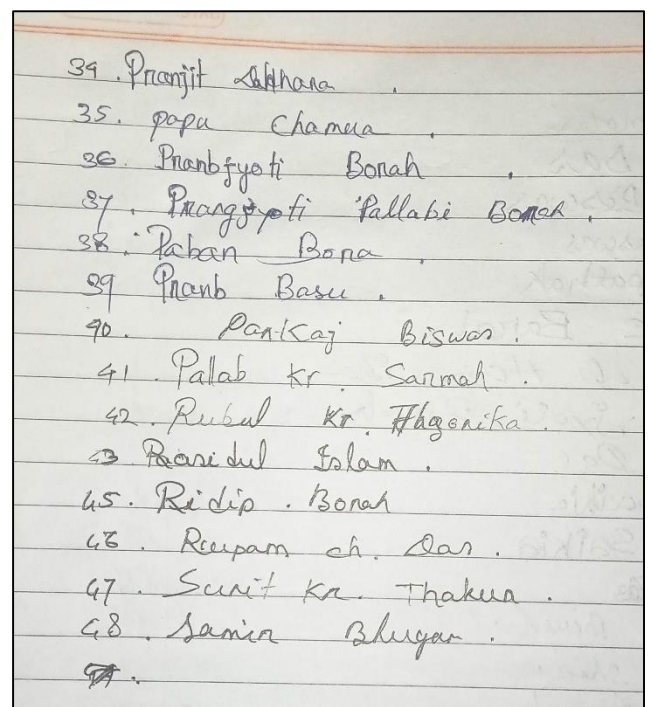 34. Pranjit
35. papu Chamua.
36. Pranbjyoti Borah.
37. Prangjyoti Pallabi Borah.
38. Paban Bora.
39 Pranb Basu.
40. Pankaj Biswas.
41. Pallab kr. Sarmah.
42. Rubul Kr.
43 Rasidul Islam.
45. Ridip. Borah
46. Rupam ch. Das.
47. Surit Kr. Thakur.
48. Samir Bhuyan.